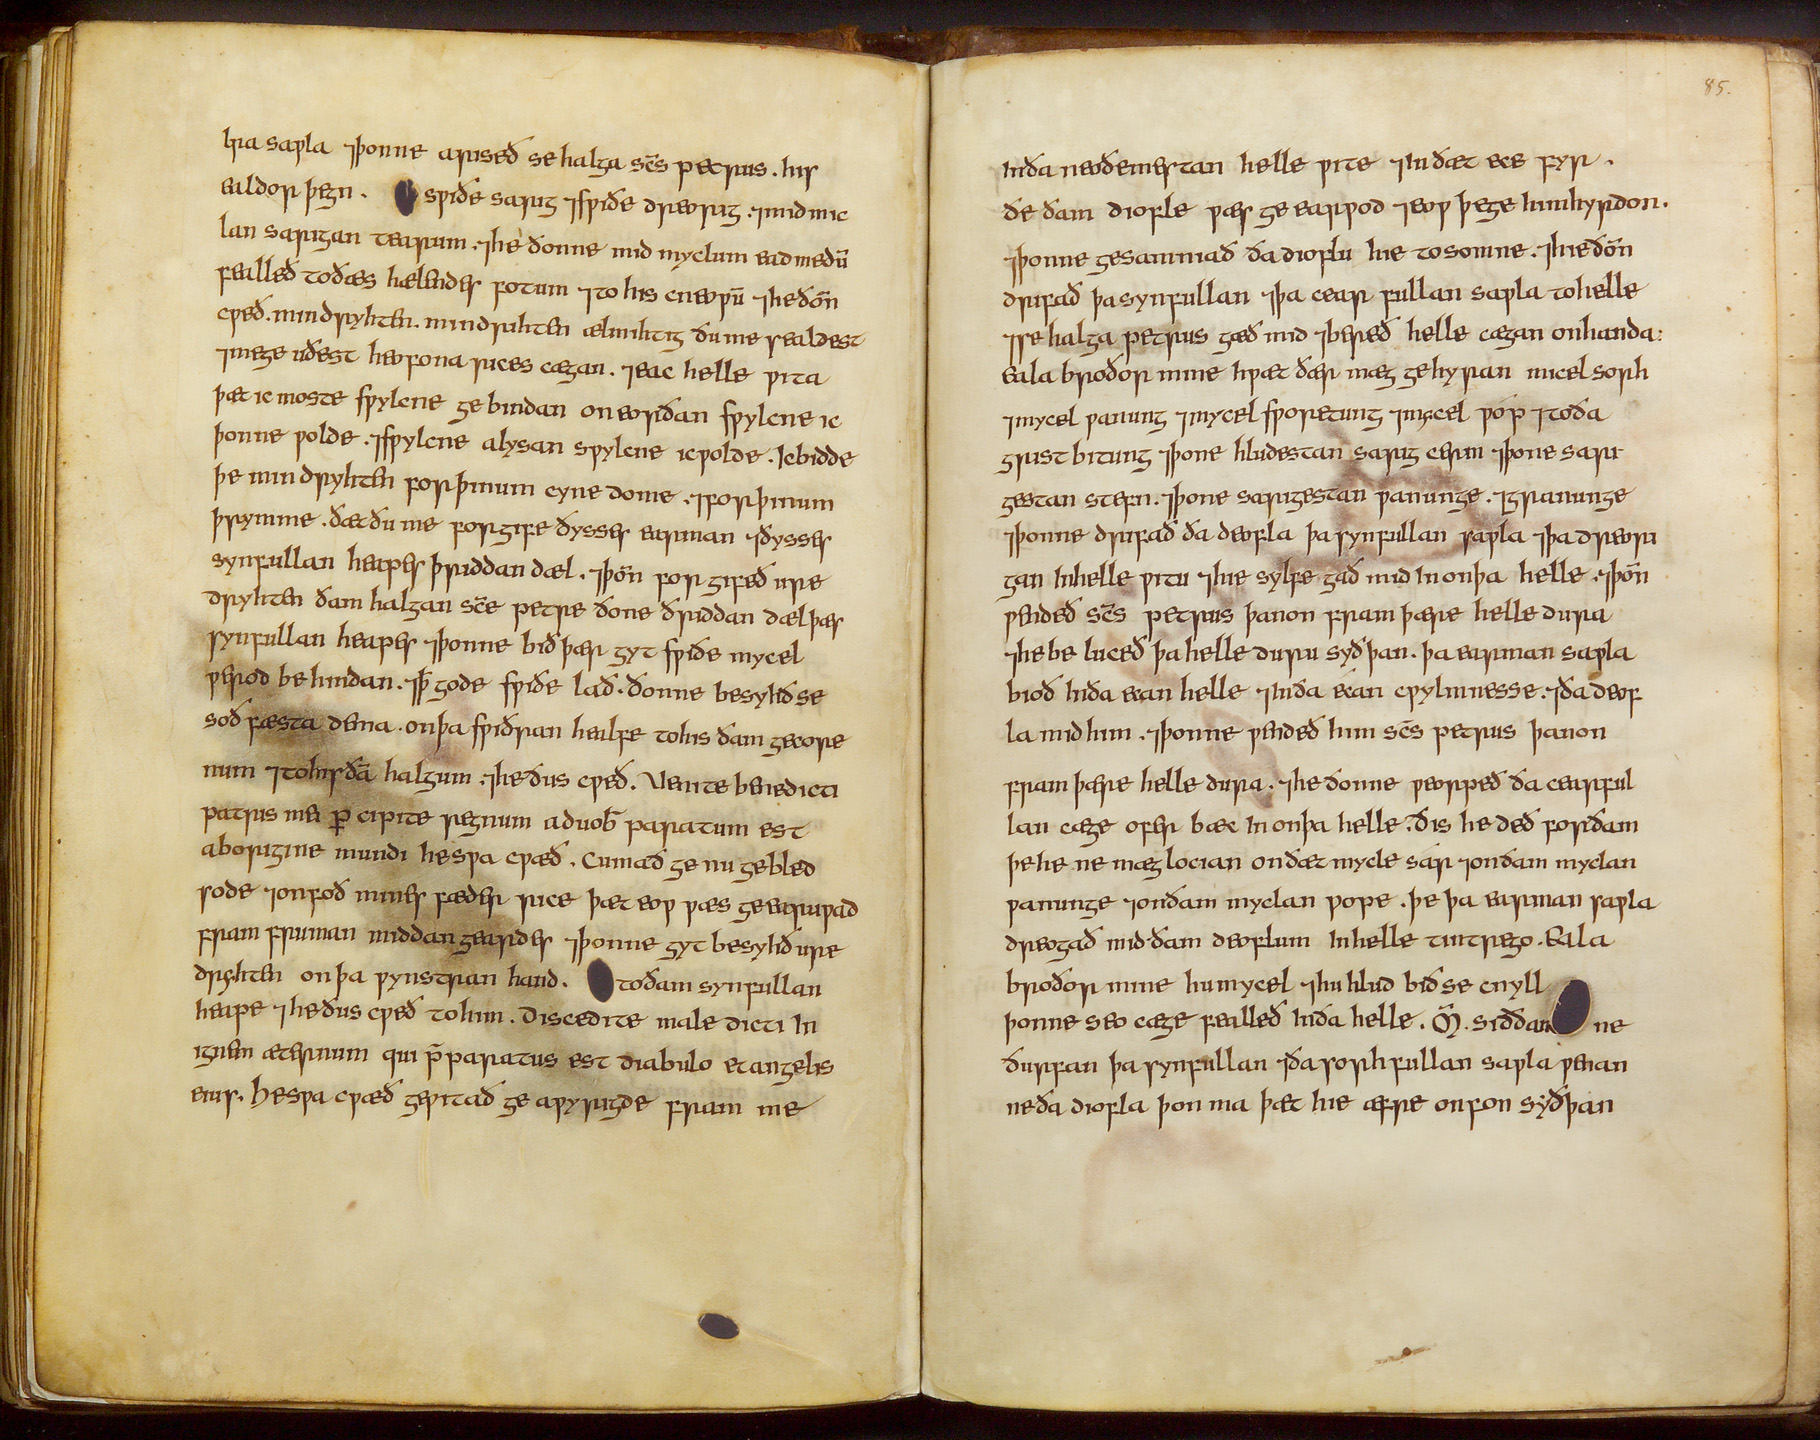 hira saƿla ⁊ þonne ariseð se halga sc̄s petrus . his
ealdor þegn . sƿiðe sarig ⁊ sƿiðe dreorig . ⁊ mid mic
lan sarigan tearum . ⁊ he ðonne mid myclum eadmedū
fealleð to ðæs hælendes fotum ⁊ to his cneoƿū ⁊ he ðoñ
cƿeð . min dryhten . min drihten ælmihtig ðu me sealdest
⁊ me ge uðest heofona rices cægan . ⁊ eac helle ƿita
þæt ic moste sƿylcne ge bindan on eorðan sƿylcne ic
þonne ƿolde . ⁊ sƿylcne alysan sƿylcne ic ƿolde . Ic bidde
þe min dryhten for þinum cyne dome . ⁊ for þinum
þrymme . ðæt ðu me forgife ðysses earman ⁊ ðysses
synfullan heaƿes þriddan dæl . ⁊ þoñ for gifeð ure
dryhten ðam halgan sc̄e petre ðone ðriddan dæl þæs
synfullan heaƿes ⁊ þonne bið þær gyt sƿiðe mycel
ƿerod be hindan . ⁊ ꝥ gode sƿiðe lað . ðonne besyhð se
soð fæsta dema . on þa sƿiðran healfe to his ðam gecore
num ⁊ to his ðā halgum . ⁊ he ðus cƿeð . Venite benedicti
patris mei ꝑ cipite regnum a duob̄ paratum est
ab origine mundi he sƿa cƿæð . Cumað ge nu gebled
sode ⁊ onfoð mines fæder rice þæt eoƿ ƿæs ge earuƿad
fram fruman middan geardes ⁊ þonne gyt besyhð ure
dryhten on þa ƿynstran hand . to ðam synfullan
heaƿe ⁊ he ðus cƿeð to him . Discedite male dicti In
ignem æternum qui p̄paratus est diabulo et angelis
eius . He sƿa cƿæð geƿitað ge aƿyrigde fram me
85.
In ða neoðemestan helle ƿite ⁊ In ðæt ece fyr .
ðe ðam diofle ƿæs ge earƿod ⁊ eoƿ þe ge him hyrdon .
⁊ þonne gesamniað ða dioflu hie to somne . ⁊ hie ðoñ
drifað þa synfullan ⁊ þa cear fullan saƿla to helle
⁊ se halga petrus gæð mid ⁊ bereð helle cægan on handa :
Eala broðor mine hƿæt ðær mæg gehyran micel sorh
⁊ mycel ƿanung ⁊ mycel sƿoretung ⁊ mycel ƿóƿ ⁊ toða
grist bitung ⁊ þone hludestan sarig cerm ⁊ þone sari
gestan stefn . ⁊ þone sarigestan ƿanunge . ⁊ granunge
⁊ þonne drifað ða deofla þa synfullan saƿla ⁊ þa dreori
gan In helle ƿitu ⁊ hie sylfe gað mid In on þa helle . ⁊ þoñ
ƿendeð sc̄s petrus þanon fram þære helle dura
⁊ he be luceð þa helle duru syð þan . þa earman saƿla
bioð In ða ecan helle ⁊ In ða écan cƿylmnesse . ⁊ ða deof
la mid him . ⁊ þonne ƿendeð him sc̄s petrus þanon
fram þære helle dura . ⁊ he ðonne ƿeorƿeð ða cearful
lan cæge ofer bæc In on þa helle . ðis he deð forðam
þe he ne mæg locian on ðæt mycle sár ⁊ on ðam myclan
ƿanunge ⁊ on ðam myclan ƿope . þe þa earman saƿla
dreogað mid ðam deoflum In helle tintrego . Eala
broðor mine hu mycel ⁊ hu hlud bið se cnyll
þonne seo cæge fealleð In ða helle . M̄ . siððan ne
ðurfan þa synfullan ⁊ ða sorh fullan saƿla ƿenan
ne ða diofla þon ma þæt hie æfre onfon syðþan